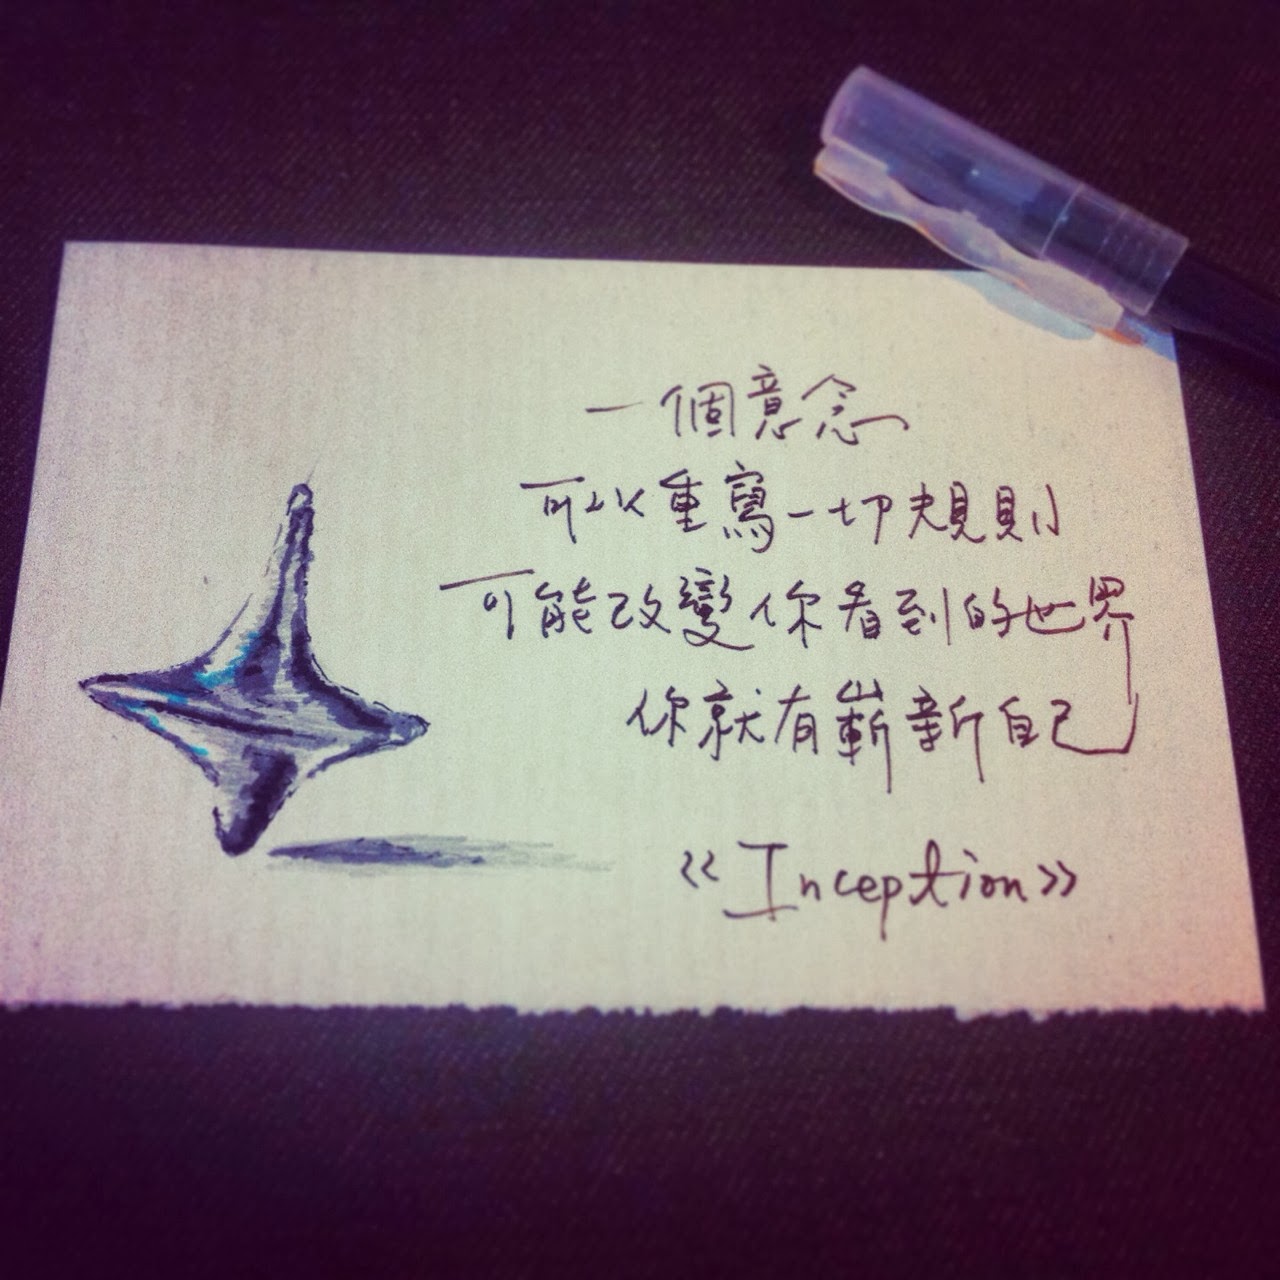 一個意念
可以重寫一切規則
可能改變你看到的世界
你就有嶄新自己
《Inception》